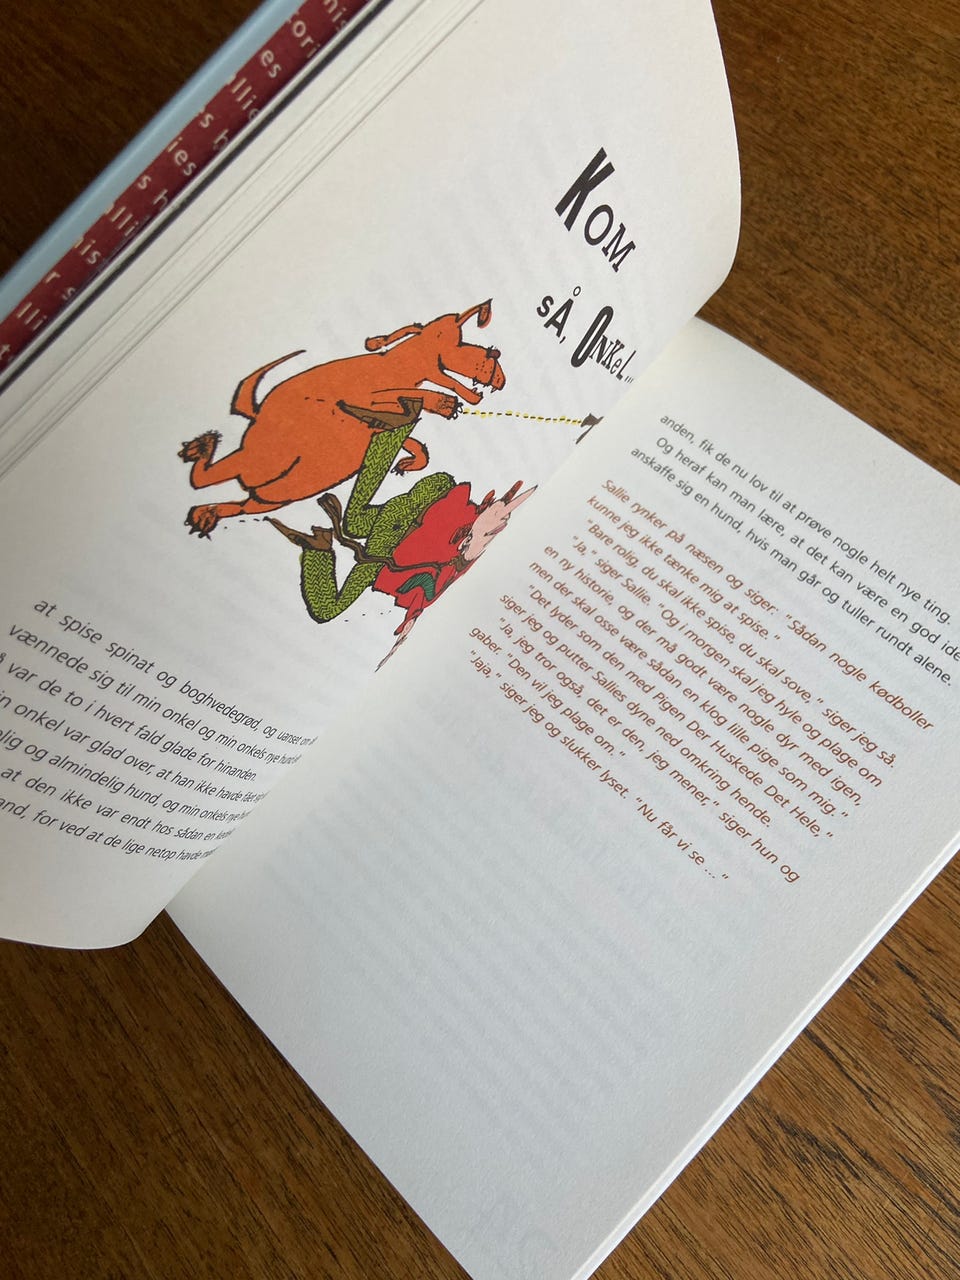 KOM
SÅ, ONKEL...
at spise spinat og boghvedegrød, og uanset om
vænnede sig til min onkel og min onkels nye hund
var de to i hvert fald glade for hinanden.
onkel var glad over, at han ikke havde fået
og almindelig hund, og min onkels nye
at den ikke var endt hos sådan en
for ved at de lige netop havde
anden, fik de nu lov til at prøve nogle helt nye ting.
Og heraf kan man lære, at det kan være en god
anskaffe sig en hund, hvis man går og tuller rundt alene.
Sallie rynker på næsen og siger: "Sådan nogle kødboller
kunne jeg ikke tænke mig at spise."
"Bare rolig, du skal ikke spise, du skal sove," siger jeg så.
"Ja," siger Sallie. "Og i morgen skal jeg hyle og plage om
en ny historie, og der må godt være nogle dyr med igen,
men der skal osse være sådan en klog lille pige som mig."
"Det lyder som den med Pigen Der Huskede Det Hele,"
siger jeg og putter Sallies dyne ned omkring hende.
"Ja, jeg tror også, det er den, jeg mener," siger hun og
gaber. "Den vil jeg plage om."
"Jaja," siger jeg og slukker lyset. "Nu får vi se ..."